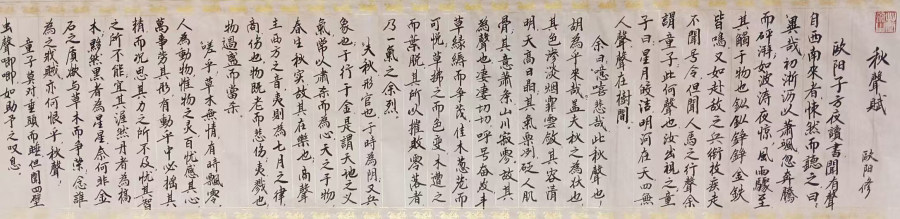 秋聲賦
歐陽修
歐陽子方夜讀書聞有聲
自西南來者悚然而聽之曰
異哉初淅瀝以蕭颯忽奔騰
而砰湃如波濤夜驚風雨驟至
其觸于物也鏦鏦錚錚金鉄
皆鳴又如赴敵之兵銜枚疾走
不聞号令但聞人馬之行聲余
謂童子此何聲也汝出視之童
子曰星月皎潔明河在天四無
人聲聲在樹間
余曰噫嘻悲哉此秋聲也
胡為乎來哉蓋夫秋之為狀也
其色慘淡烟霏雲斂其容清
明天高日晶其氣慄冽砭人肌
骨其意蕭条山川寂寥故其
為聲也淒淒切切呼号奮發丰
草綠縟而爭茂佳木葱蘢而
可悅草拂之而色变木遭之
而葉脫其所以摧敗零落者
乃一氣之余烈
夫秋形官也于時為陰又兵
象也于行于金是謂天地之义
氣常以肅杀而為心天之于物
春生秋实故其在樂也商聲
主西方之音夷則為七月之律
商伤也物既老而悲伤夷戮也
物過盛而當杀
嗟乎草木無情有時飄零
人為動物惟物之灵百忧感其心
萬事劳其形有動乎中必摇其
精而况思其力之所不及忧其智
之所不能宜其渥然丹者為槁
木黟然黑者為星星奈何非金
石之質欲與草木而爭荣念誰
為之戕賊亦何恨乎秋聲
童子莫对垂頭而睡但聞四壁
虫聲唧唧如助予之叹息